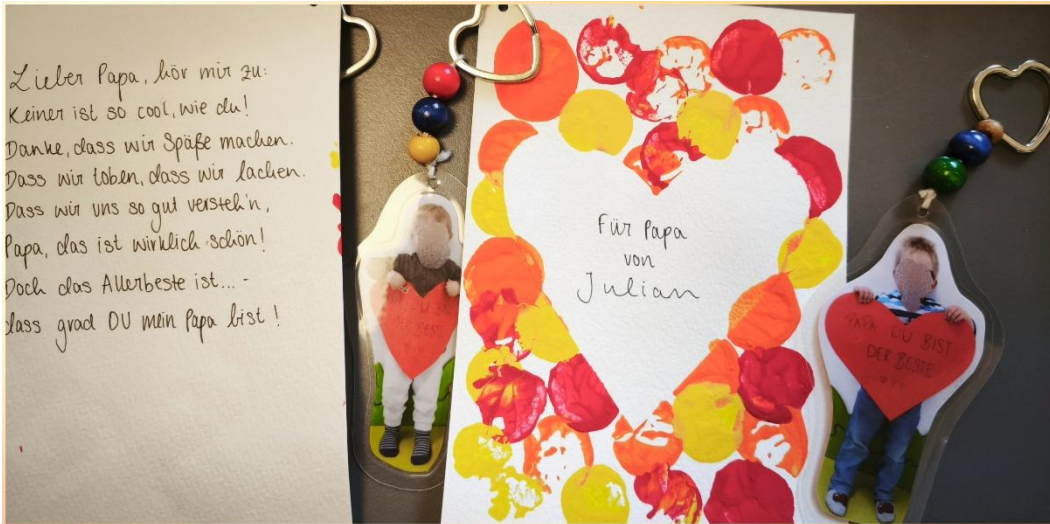 Lieber Papa, hör mir zu:
Keiner ist so cool, wie du!
Danke, dass wir Späße machen.
Dass wir toben, dass wir lachen.
Dass wir uns so gut versteh'n,
Papa, das ist wirklich schön!
Doch das Allerbeste ist... -
dass grad DU mein Papa bist!
DU
BESTE
Für Papa
von
Julian
PAPA DU BIST
DER BESTE